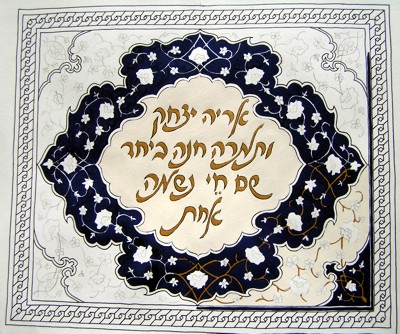 אריה יצחק
ותמרה חנה ביחד
שם חי נשמה
אחת